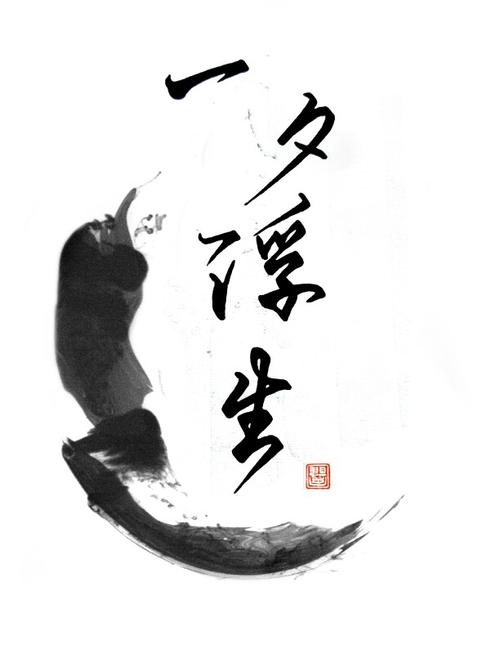 一夕浮生